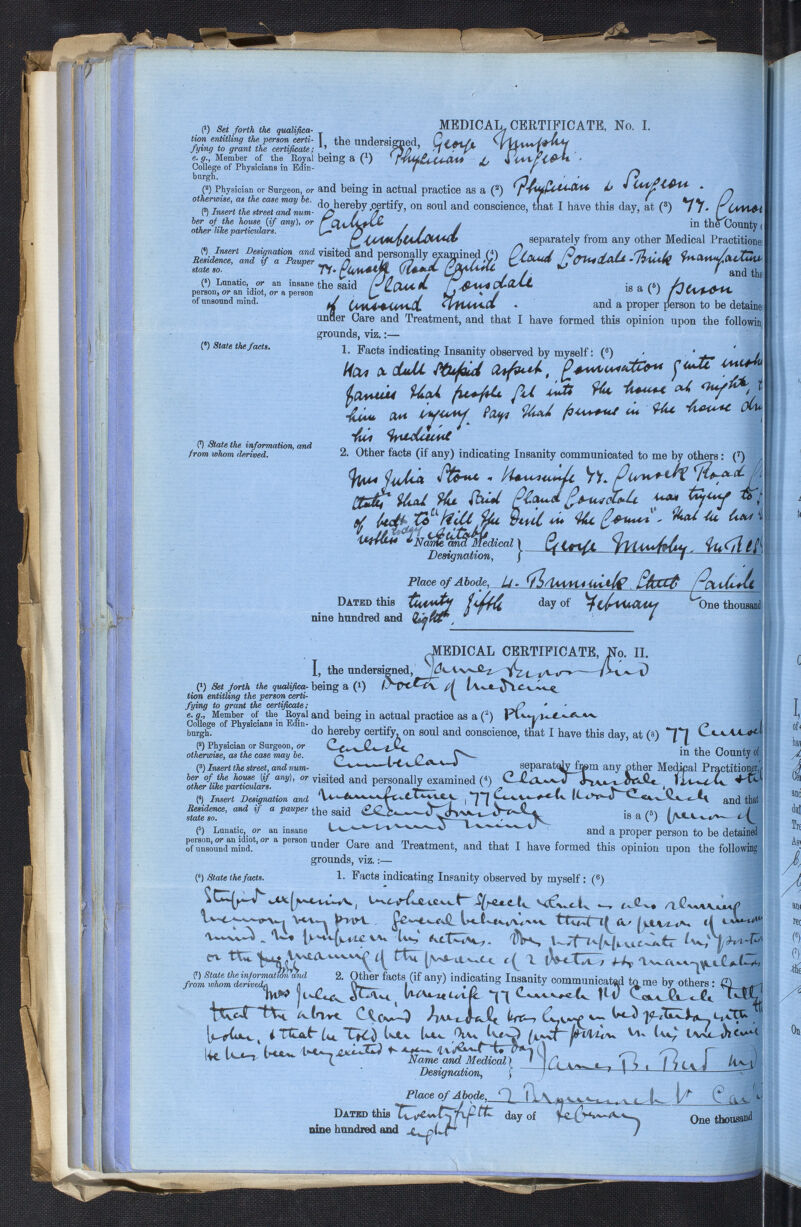 MEDICAL CERTIFICATE, No. I.
(¹) Set forth the qualifica-
tion entitling the person certi-
fying to grant the certificate;
e. g., Member of the Royal
College of Physicians in Edin-
burgh.
I, the undersigned, George Murphy
being a (¹) Physician & Surgeon.
(²) Physician or Surgeon, or
otherwise, as the case may be.
and being in actual practice as a (²) Physician & Surgeon.
(³) Insert the street and num-
ber of the house (if any), or
other like particulars.
do hereby certify, on soul and conscience, that I have this day, at (³) 77.
Carlisle in the County
Cumberland separately from any other Medical Practitione
(⁴) Insert Designation and
Residence, and if a Pauper
state so.
visited and personally examined (⁴) Claud Lonsdale - Brick manufacture
77. Road Carlisle and tha
(⁵) Lunatic, or an insane
person, or an idiot, or a person
of unsound mind.
the said Claud Lonsdale is a (⁵) person
of unsound mind. and a proper person to be detaine
under Care and Treatment, and that I have formed this opinion upon the followin
grounds, viz.:—
(⁶) State the facts.
1. Facts indicating Insanity observed by myself: (⁶)
Has a dull stupid aspect. Conversation quite
fancies that people get into the house at night
him an injury says that persons in the house
his medicine
(⁷) State the information, and
from whom derived.
2. Other facts (if any) indicating Insanity communicated to me by others: (⁷)
Mrs Julia Stone - Housewife 77. Road
states that the said Claud Lonsdale was trying to
of bed to "kill the Devil in the Corner". that he has
restless & excitable
today
Name and Medical
Designation,
George Murphy. M.R.C.S
Place of Abode, 4. Brunswick Street Carlisle
DATED this twenty fifth day of February One thousand
nine hundred and eight.
MEDICAL CERTIFICATE, No. II.
I, the undersigned, James Bird
(¹) Set forth the qualifica-
tion entitling the person certi-
fying to grant the certificate;
e. g., Member of the Royal
College of Physicians in Edin-
burgh.
being a (¹) Doctor of Medicine
and being in actual practice as a (²) Physician
do hereby certify, on soul and conscience, that I have this day, at (³) 77
(²) Physician or Surgeon, or
otherwise, as the case may be.
Carlisle in the County of
(³) Insert the street, and num-
ber of the house (if any), or
other like particulars.
Cumberland separately from any other Medical Practitioner,
visited and personally examined (⁴) Claud Lonsdale Brick
(⁴) Insert Designation and
Residence, and if a pauper
state so.
Manufacturer, 77 Road Carlisle and that
the said Claud Lonsdale is a (⁵) person of
(⁵) Lunatic, or an insane
person, or an idiot, or a person
of unsound mind.
unsound mind and a proper person to be detained
under Care and Treatment, and that I have formed this opinion upon the following
grounds, viz.:—
(⁶) State the facts.
1. Facts indicating Insanity observed by myself: (⁶)
Stupid expression, incoherent speech which is also slurring
memory very poor. General behaviour that of a person of
mind. No purpose in his actions. Does not appreciate his
or the meaning of the presence of 2 doctors
(⁷) State the information and
from whom derived.
2. Other facts (if any) indicating Insanity communicated to me by others: (⁷)
Mrs Julia Stone, housewife 77 Rd Carlisle
that the above Claud Lonsdale was lying in bed yesterday with
poker, & that he told her had put poison in his medicine
He has been very excited & even violent to day
Name and Medical
Designation,
James B. Bird
Place of Abode, 2 Brunswick St
DATED this twenty fifth day of February One thousand
nine hundred and eight